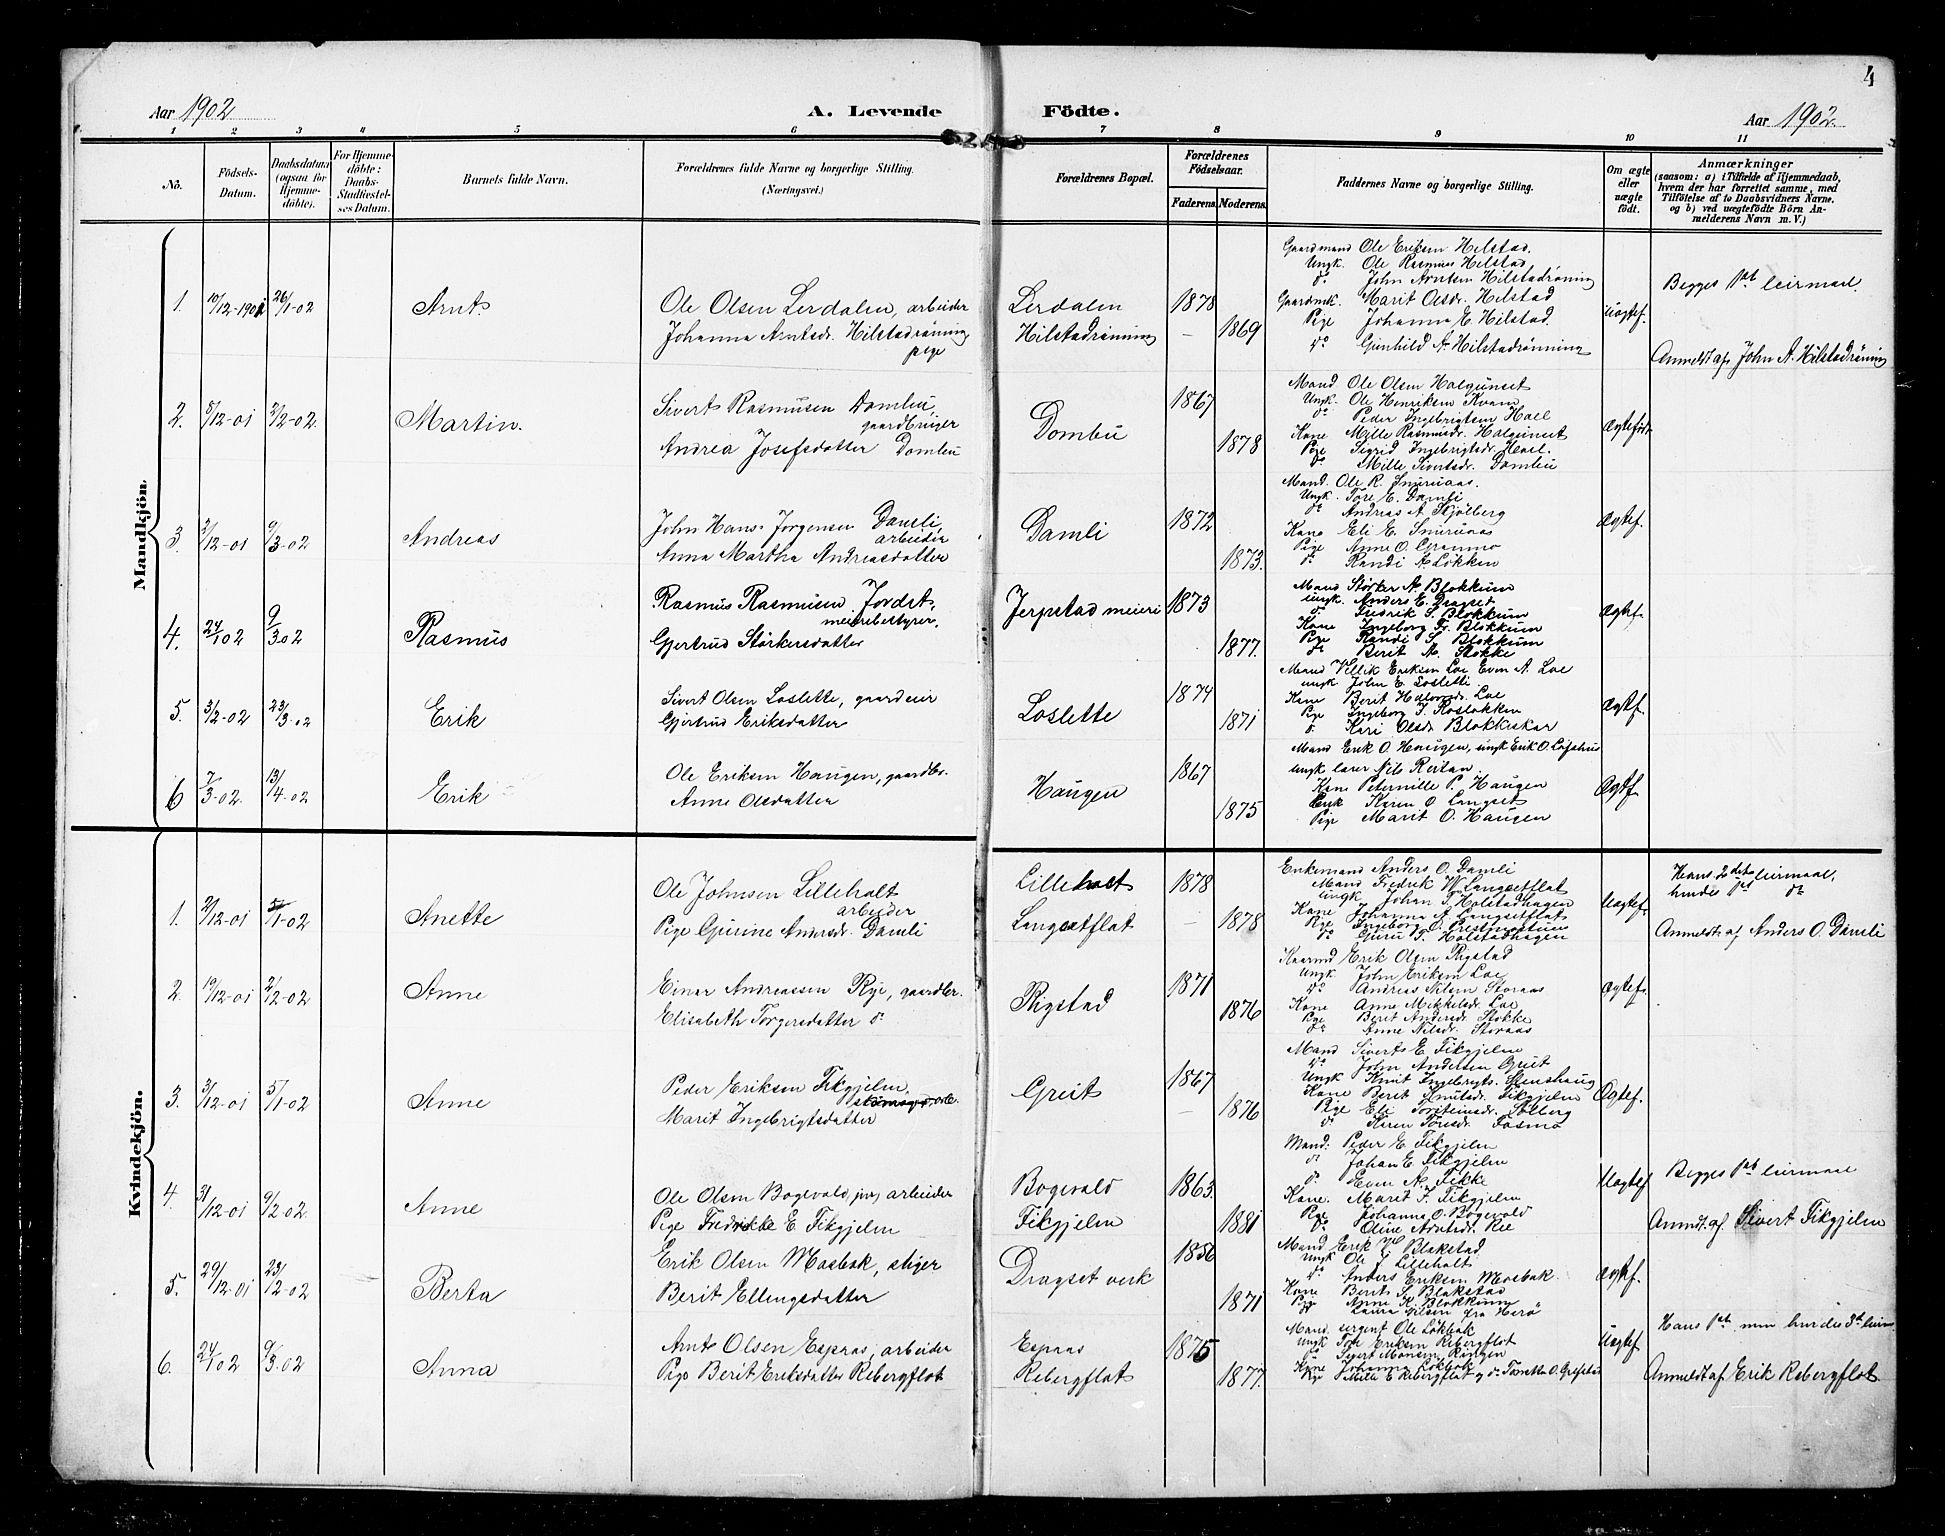 4
Aar 1902
A. Levende Födte.
Aar 1902
1 2 3 4 5 6 7 8 9 10 11
No.
Födsels-
Datum.
Daabsdatum
(ogsaa for
Hjemme-
döbte).
For Hjemme-
döbte:
Daabs-
Stadfæstel-
ses Datum.
Barnets fulde Navn.
Forældrenes fulde Navne og borgerlige Stilling.
(Næringsvei.)
Forældrenes Bopæl.
Forældrenes
Födselsaar.
Faderens. Moderens.
Faddernes Navne og borgerlige Stilling.
Om ægte
eller
uægte
födt.
Anmærkninger
(saasom: a) i Tilfælde af Hjemmedaab,
hvem der har forrettet samme, med
Tilföielse af to Daabsvidners Navne.
og b) ved uægtefödte Börn An-
melderens Navn m. V.)
Mandkjön.
1. 10/12-1901 26/1-02 Arnt
Ole Olsen Lerdalen, arbeider
Johanna Arntsdr. Hilstadrönning
pige
Lerdalen 1878
Hilstadrönning - 1869
Gaardmand Ole Eriksen Hilstad.
Ungk. Ole Rasmus Hilstad
do John Arntsen Hilstadröning
Gaardmk. Marit Olsdr. Hilstad
Pige Johanna E. Hilstad.
do Gunhild A. Hilstadrönning
Uægtef.
Begges 1ste leirmaal.
Anmeldt af John A. Hilstadröning
2. 8/12-01 2/2-02. Martin.
Sivert Rasmusen Dombu,
gaardbruger
Andrea Josefsdatter Dombu
Dombu 1867
1878
Mand Ole Olsen Halgunset
Ungk. Ole Henriksen Kvam
do Peder Ingebrigtsen Hoel
Kone Mille Rasmusdr. Halgunset
Pige Sigrid Ingebrigtsdr. Hoel.
do Mille Sivertsdr. Dombu
Ægtefödt
3. 2/12-01 9/3-02 Andreas
John Hans Jorgensen Damli,
arbeider
Anna Martha Andreasdatter
Damli 1872
1873.
Mand. Ole R. Snuruaas.
Ungk. Tore E. Damli
do Andreas A. Skjölberg
Kone Eli E. Snuruaas
Pige Anne O. Granmo
do Randi A. Lökken
Ægtef.
4. 24/1 02 9/3 02 Rasmus
Rasmus Rasmusen Jordet,
meieribestyrer.
Gjertrud Störkersdatter
Jerpstad meieri 1873
1877.
Mand Störker A. Blokkum
Ungk. Anders E. Dragset
do Fredrik S. Blokkum
Kone Ingeborg Fr. Blokkum
Pige Randi S. Blokkum
do Berit A. Stokke
Ægtef.
5. 3/2-02 23/3-02 Erik
Sivert Olsen Loslette, gaardeier
Gjertrud Eriksdatter
Loslette 1874
1871
Mand Villik Eriksen Loe Even A. Loe
ungk. John E. Sosletti
Kone Berit Halvorsdr. Loe
Pige Ingeborg J. Rosløkken
do Kari Olsdr. Blokkeskar
Ægtf.
6 7/3-02. 13/4-02 Erik
Ole Eriksen Haugen, gaardbr.
Anne Olsdatter
Haugen 1867
1875
Mand Erik O. Haugen, ungk Erik O. Løfshus
Ungk lærer Nils Reitan
Kone Peternille P. Haugen
Enk Karen O. Langset
Pige Marit O. Haugen
Ægtf.
Kvindekjön.
1. 2/12-01 5/1-02 Anette
Ole Johnsen Lilleholt
arbeider
Pige Gurine Andersdr. Damli
Lilleholt 1878
Langsetflat - 1878
Enkemand Anders O. Damli
Mand Fredrik W. Langsetflat
Ungk Johan T. Holstadhagen
Kone Johanna A. Langsetflat
Pige Ingeborg O. Prestmostuen
do Guru T. Holstadhagen
Uægtef.
Hans 2det leirmaal,
hendes 1ste do
Anmeldt af Anders O. Damli
2. 19/12-01 2/2-02 Anne
Einar Andreassen Rye, gaardbr.
Elisabeth Torgersdatter do
Rigstad 1871
1876
Kaarmd Erik Olsen Rigstad
Ungk John Eriksen Loe
do Andreas Nilsen Storaas
Kone Anne Mikkelsdr. Loe
Pige Berit Andersdr. Stokke
do Anne Nilsdr. Storaas
Ægtef.
3. 3/12-01 5/1-02 Anne
Peder Eriksen Fikgjelm,
arb.
Marit Ingebrigtsdatter
Greit 1867
- 1876
Mand Siverts E. Fikgjelm
do John Andersen Greit
Ungk Knut Ingebrigts. Stenshaug
Kone Berit Knutsdr. Fikgjelm
Pige Eli Torsteinsdr. Solberg
do Karen Toresdr. Fosmo
Ægtef.
4. 31/12-01 9/2-02. Anne
Ole Olsen Bogevald jnr, arbeider
Pige Fredrikke E Fikgjelm
Bogevald 1863.
Fikgjelm 1881
Mand. Peder E. Fikgjelm
do Johan E. Fikgjelm
do Even A. Fikke
Kone. Marit J. Fikgjelm
Pige Johanna O. Bogevold
do Oline Arntsdr. Ree
Uægtef
Begges 1ste leirmaal
Anmdt. af Sivert Fikgjelm
5. 29/12-01 23/12-02 Berta
Erik Olsen Mosbak, stiger
Berit Ellingsdatter
Dragset verk 1856
1871
Mand Erik Blakstad
Ungk Ole J Lilleholt
do Anders Eriksen Mosbak.
Kone Berit S. Blakstad
Pige Anne K. Blokkum
do Laura Nilsen fra Herö
Ægtef.
6. 24/1 02 9/3-02 Anna
Arnt Olsen Espaas, arbeider
Pige Berit Eriksdatter Rebergflot
Espaas 1875
Rebergflot 1877.
Mand. sergent Ole Lökbak
Ungk Tore Eriksen Rebergflot
do Sivert Monsen Ringen
Kone Johanna Lökbak
Pige Mille E Rebergflot og do Toretta O. Grefstad
Uægtef
Hans 1ste men hendes 3die leirm
Anmeldt af Erik Rebergflot.